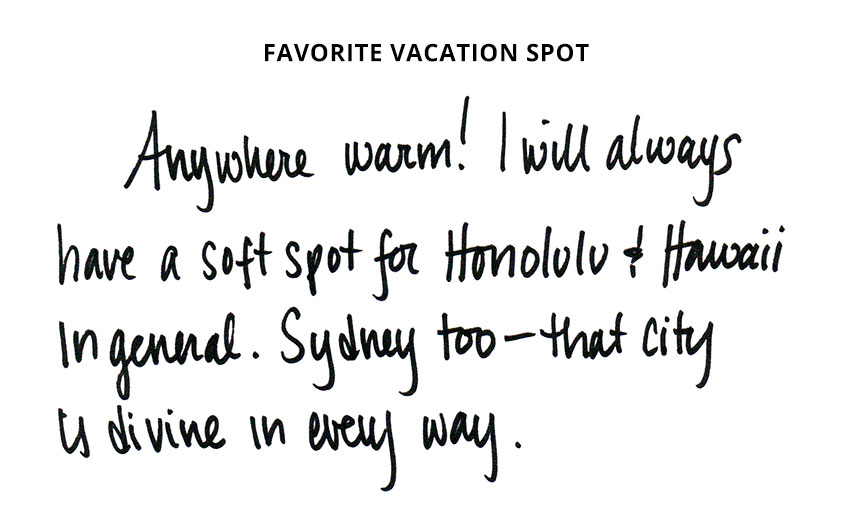 FAVORITE VACATION SPOT
Anywhere warm! I will always
have a soft spot for Honolulu & Hawaii
in general. Sydney too—that city
is divine in every way.